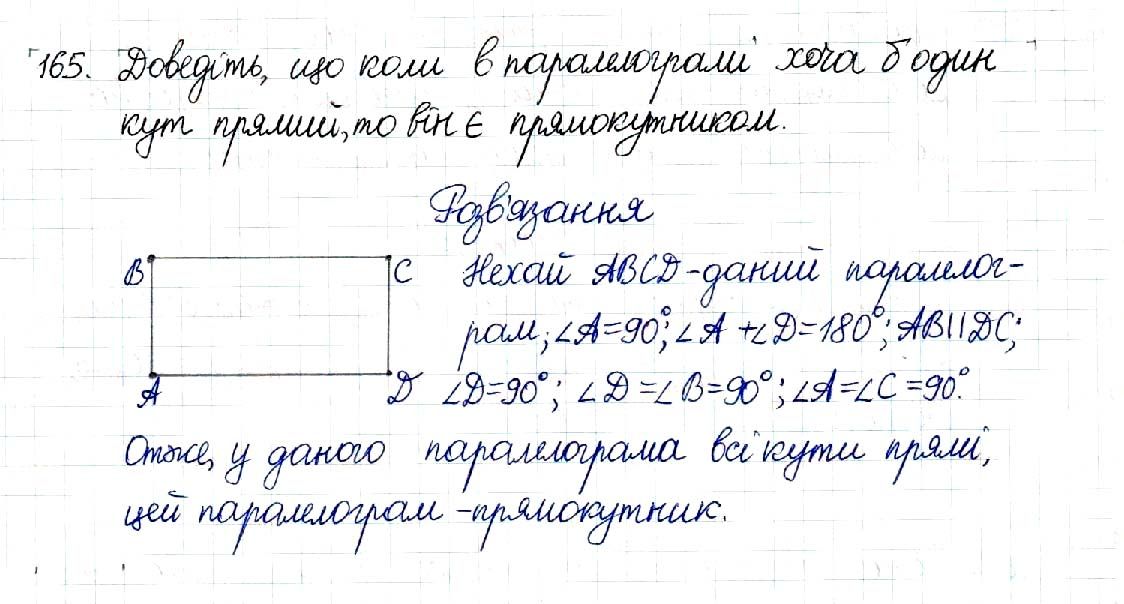 165. Доведіть, що коли в паралелограмі хоча б один
кут прямий, то він є прямокутником.
Розв'язання
B
C
A
D
Нехай ABCD - даний паралелог-
рам; ∠A=90°; ∠A +∠D=180°; AB||DC;
∠D=90°; ∠D=∠B=90°; ∠A=∠C=90°.
Отже, у даного паралелограма всі кути прямі,
цей паралелограм - прямокутник.